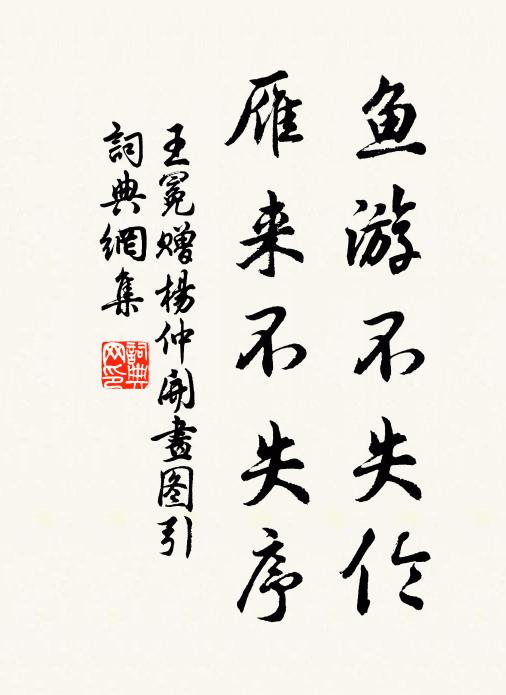 鱼游不失伦
雁来不失序
王冕赠楊仲開畫图引
詞典網集
詞典网印